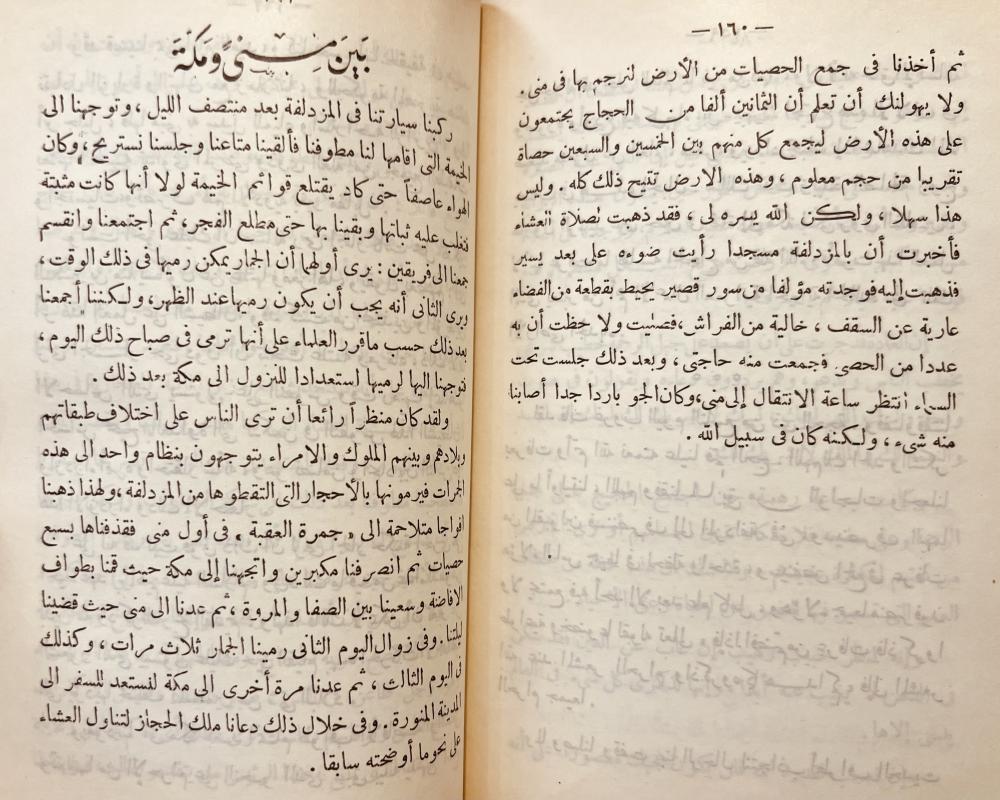 — ١٦٠ —
ثم أخذنا فى جمع الحصيات من الأرض لنرجم بها فى منى .
ولا يهولنك أن تعلم أن الثمانين ألفا من الحجاج يجتمعون
على هذه الأرض ليجمع كل منهم بين الخمسين والسبعين حصاة
تقريبا من حجم معلوم ، وهذه الارض تتيح ذلك كله . وليس
هذا سهلا ، ولكن الله يسره لى ، فقد ذهبت لصلاة العشاء
فأخبرت أن بالمزدلفة مسجدا رأيت ضوءه على بعد يسير
فذهبت إليه فوجدته مؤلفا من سور قصير يحيط بقطعة من الفضاء
عارية عن السقف ، خالية من الفراش، فصليت ولاحظت أن به
عددا من الحصى فجمعت منه حاجتى ، وبعد ذلك جلست تحت
السماء انتظر ساعة الانتقال إلى منى، وكان الجو باردا جدا أصابنا
منه شىء ، ولكنه كان فى سبيل الله .
بَينَ مِنىً وَمكَّةَ
ركبنا سيارتنا فى المزدلفة بعد منتصف الليل ، وتوجهنا الى
الخيمة التى اقامها لنا مطوفنا فألقينا متاعنا وجلسنا نستريح ، وكان
الهواء عاصفاً حتى كاد يقتلع قوائم الخيمة لولا أنها كانت مثبتة
فتغلب عليه ثباتها وبقينا بها حتى مطلع الفجر، ثم اجتمعنا وانقسم
جمعنا الى فريقين : يرى أولهما أن الجمار يمكن رميها فى ذلك الوقت ،
ويرى الثانى أنه يجب أن يكون رميها عند الظهر، ولكننا أجمعنا
بعد ذلك حسب ما قرر العلماء على أنها ترمى فى صباح ذلك اليوم ،
فتوجهنا اليها لرميها استعدادا للنزول الى مكة بعد ذلك .
ولقد كان منظراً رائعا أن ترى الناس على اختلاف طبقاتهم
وبلادهم وبينهم الملوك والامراء يتوجهون بنظام واحد الى هذه
الجمرات فيرمونها بالأحجار التى التقطوها من المزدلفة ، ولهذا ذهبنا
افواجا متلاحمة الى « جمرة العقبة » فى أول منى فقذفناها بسبع
حصيات ثم انصرفنا مكبرين واتجهنا إلى مكة حيث قمنا بطواف
الافاضة وسعينا بين الصفا والمروة ، ثم عدنا الى منى حيث قضينا
ليلتنا . وفى زوال اليوم الثانى رمينا الجمار ثلاث مرات ، وكذلك
فى اليوم الثالث ، ثم عدنا مرة أخرى الى مكة لنستعد للسفر الى
المدينة المنورة . وفى خلال ذلك دعانا ملك الحجاز لتناول العشاء
على نحو ما أوضحته سابقا .